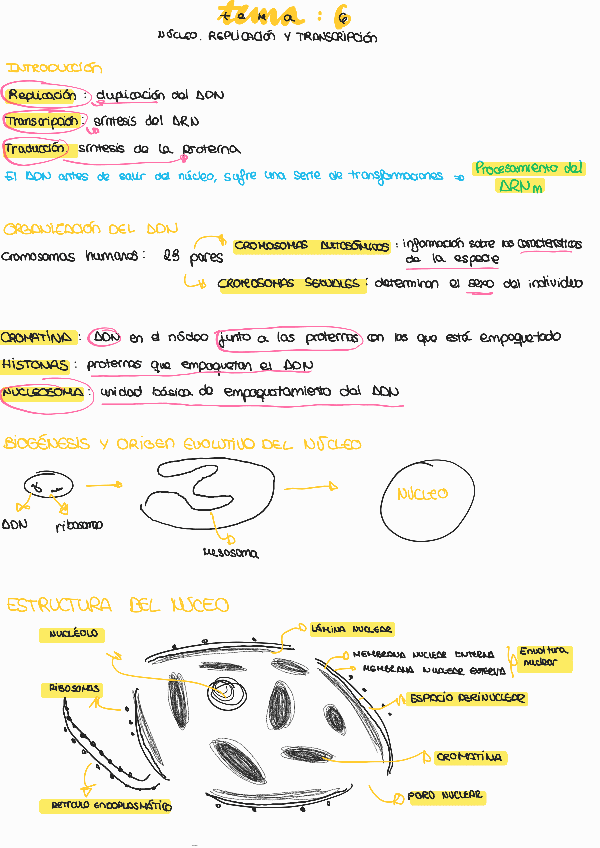 tema : 6
NÚCLEO. REPLICACIÓN Y TRANSCRIPCIÓN
INTRODUCCIÓN
Replicación : duplicación del ADN
Transcripción : síntesis del ARN
Traducción síntesis de la proteína
El ADN antes de salir del núcleo, sufre una serie de transformaciones ⇒ Procesamiento del
ARNm
ORGANIZACIÓN DEL ADN
Cromosomas humanos : 23 pares
CROMOSOMAS AUTOSÓMICOS : información sobre las características
de la especie
CROMOSOMAS SEXUALES : determinan el sexo del individuo
CROMATINA : ADN en el núcleo junto a las proteínas con las que está empaquetado
HISTONAS : proteínas que empaquetan el ADN
NUCLEOSOMA : unidad básica de empaquetamiento del ADN
BIOGÉNESIS Y ORIGEN EVOLUTIVO DEL NÚCLEO
ADN
ribosoma
mesosoma
NÚCLEO
ESTRUCTURA DEL NÚCEO
NUCLÉOLO
LÁMINA NUCLEAR
MEMBRANA NUCLEAR INTERNA
MEMBRANA NUCLEAR EXTERNA
Envoltura
nuclear
RIBOSOMAS
ESPACIO PERINUCLEAR
CROMATINA
RETÍCULO ENDOPLASMÁTICO
PORO NUCLEAR